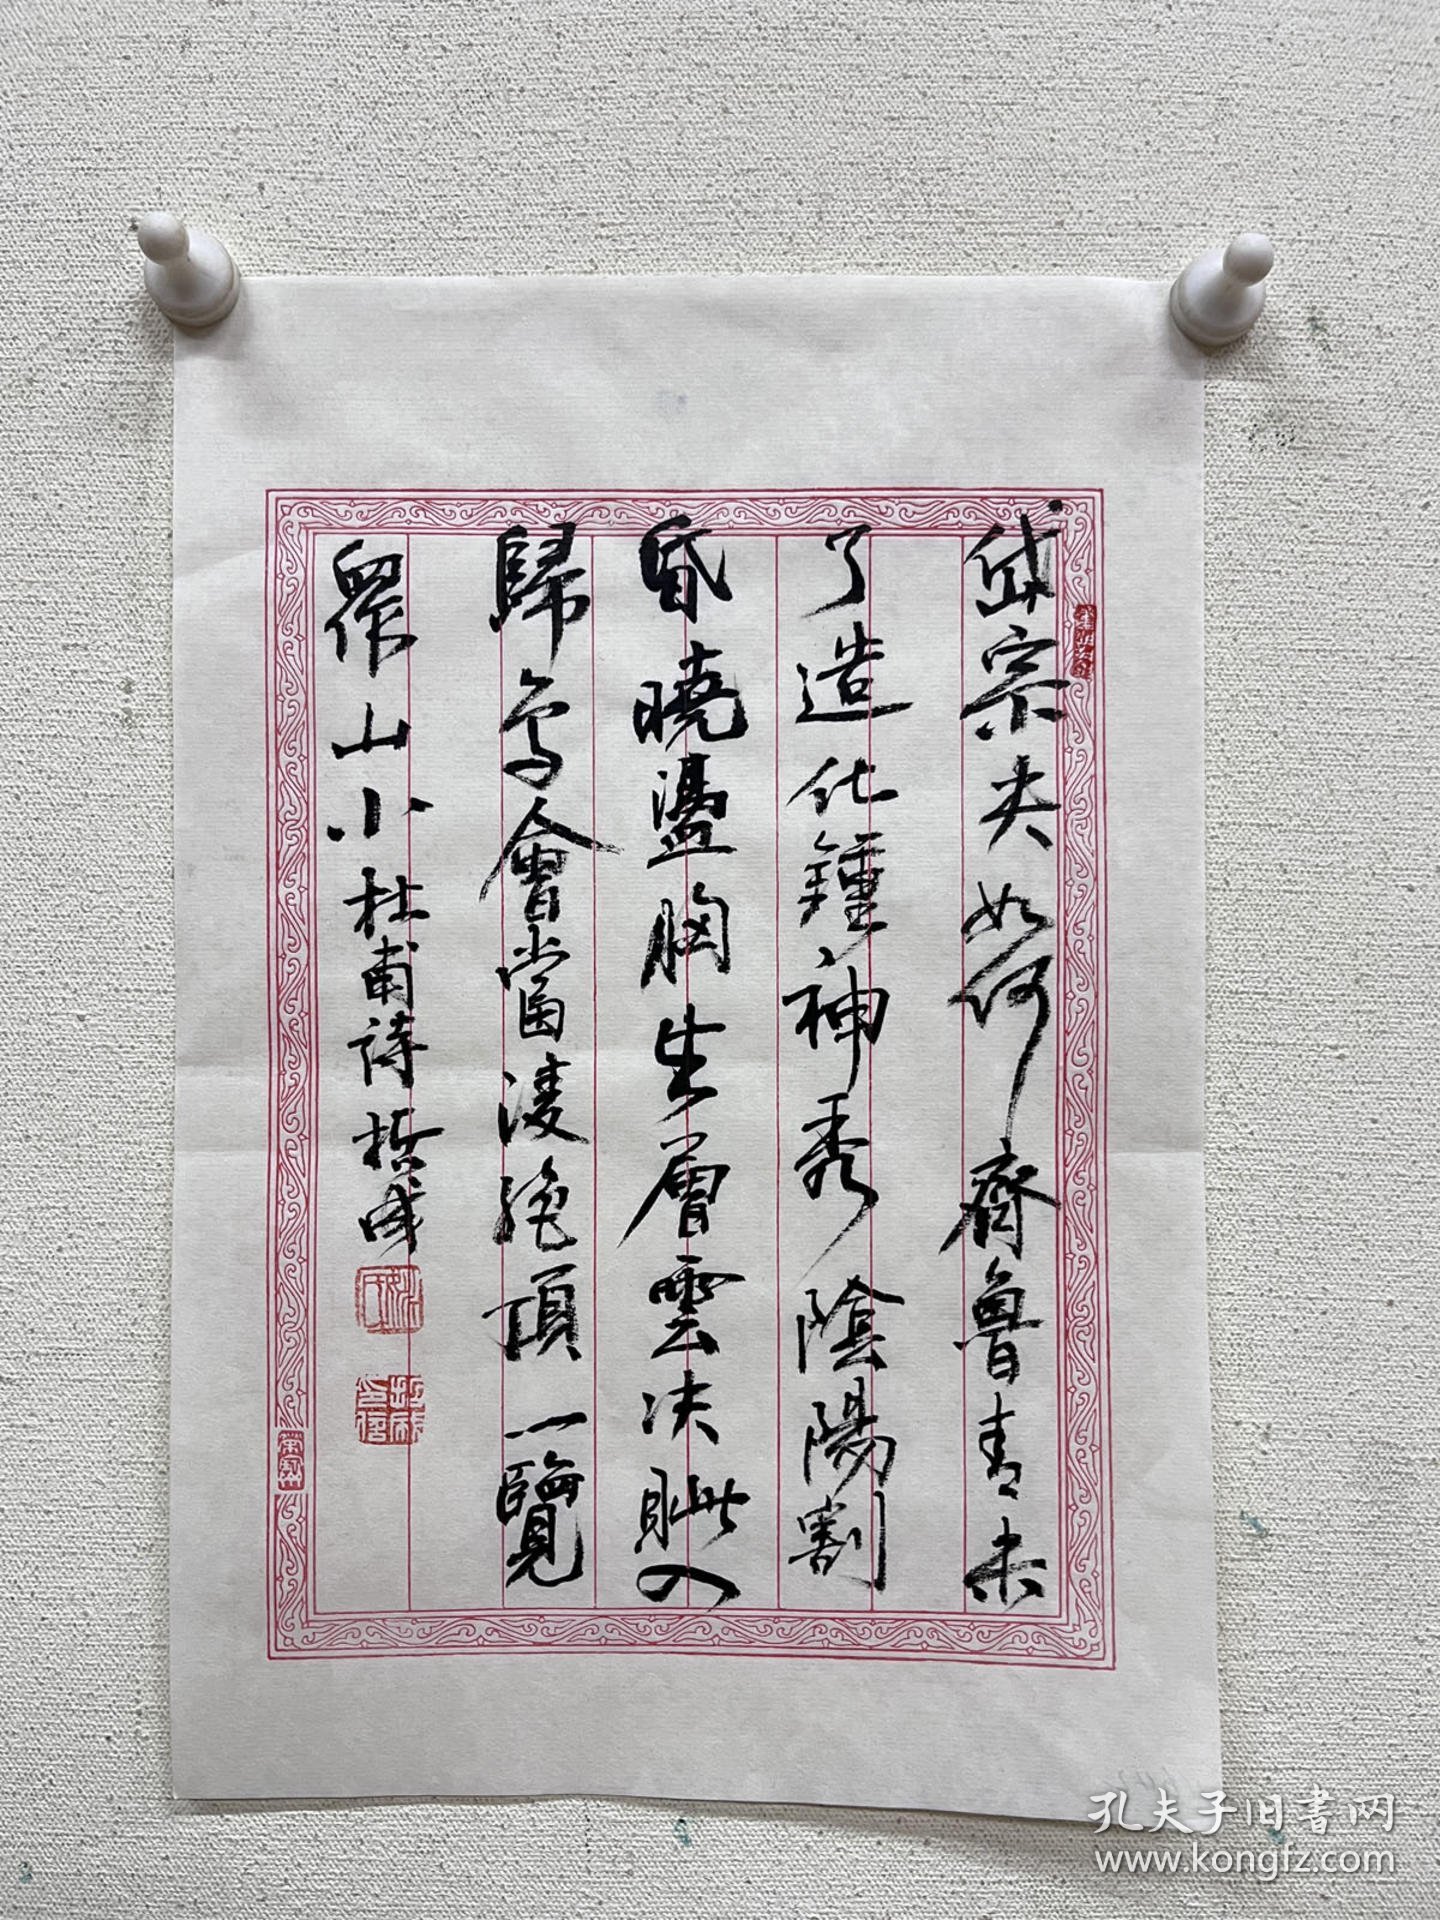 岱宗夫如何齊魯青未
了造化鍾神秀陰陽割
昏曉盪胸生層雲決眥入
歸鳥會當凌絕頂一覽
眾山小杜甫詩哲成
孔夫子旧书网
www.kongfz.com